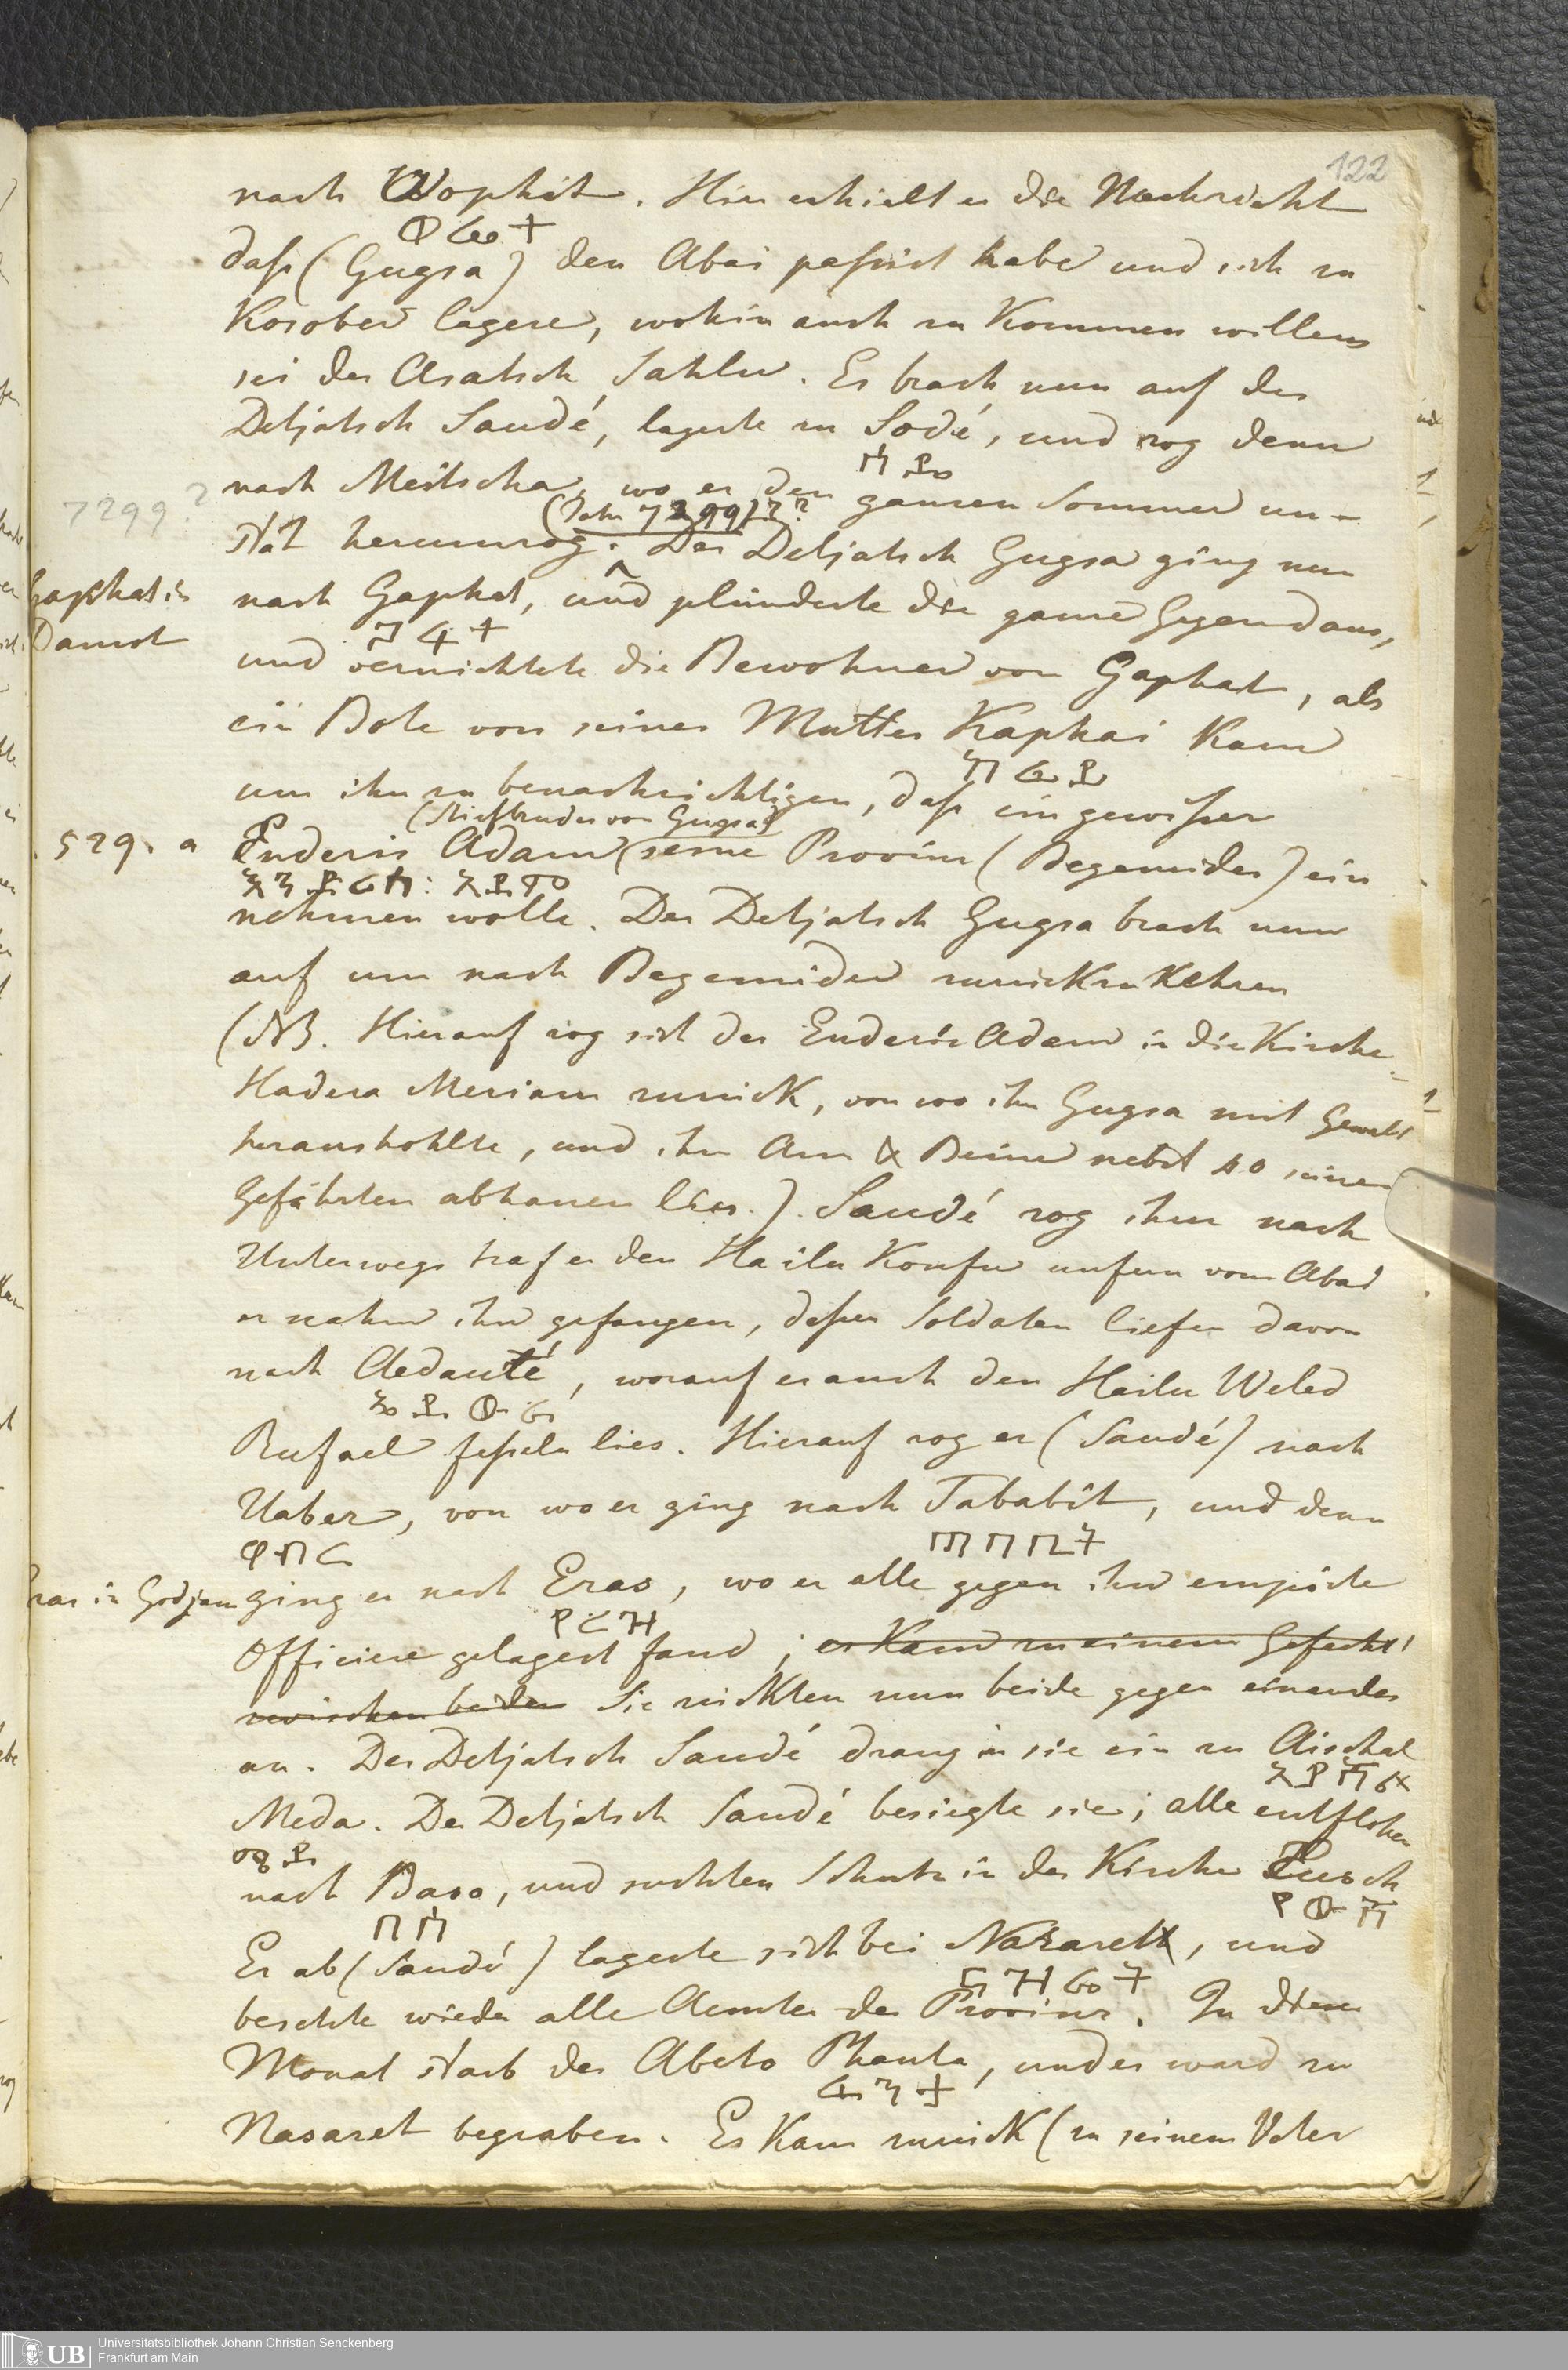 122
nach Wophit. Hier erhielt er die Nachricht
daß (Gugsa) den Abai paßirt habe und sich zu
Kosober lagere, wohin auch zu Kommen willens
sei der Asatsch Sahlu. Es brach nun auf der
Detjatsch Saudé, lagerte zu Sodé, und zog denn
ሶዴ
7299?
nach Meitscha, wo er den ganzen Sommer un-
(Jahr 7299)??
stät herumzog. Der Detjatsch Gugsa ging nun
Gaphat in
Damot
nach Gaphat, und plünderte die ganze Gegend aus,
ጋፋት
und vernichtete die Bewohner von Gaphat, als
ein Bote von seiner Mutter Kaphai Kam
um ihn zu benachrichtigen, daß ein gewißer
(Stiefbruder von Gugsa)
529. a
Enderis Adam (seine Provinz (Begemider) ein
እንድርስ: አዳም
nehmen wolle. Der Detjatsch Gugsa brach nun
auf um nach Begemider zurückzukehren
(NB. Hierauf zog sich der Enderis Adam in die Kirche
Madera Meriam zurück, von wo ihn Gugsa mit Gewalt
heraushohlte, und ihm Arm & Beine nebst 40 seiner
Gefährten abhauen lies.). Saudé zog ihm nach
Unterwegs traf er den Hailu Konfu unfern vom Abai
er nahm ihn gefangen, deßen Soldaten liefen davon
nach Aedauté, worauf er auch den Hailu Weled
Rufael feßeln lies. Hierauf zog er (Saudé) nach
Uaber, von wo er ging nach Tababit, und denn
ዋብር ጠባቢት
Eras in Godjam
ging er nach Eras, wo er alle gegen ihn empörte
Officiere gelagert fand; es Kam zu einem Gefecht
zwischen beiden Sie rückten nun beide gegen einander
an. Der Detjatsch Saudé drang in sie ein zu Aischal
Meda. Der Detjatsch Saudé besiegte sie; alle entflohen
ሜዳ
nach Baso, und suchten Schutz in der Kirche Eusch
ባሶ የውሽ
Er ab (Saudé) lagerte sich bei Nazaret, und
ናዝሬት
besetzte wieder alle Aemter der Provinz. In diesem
Monat starb der Abeto Phanta, und er ward zu
ፋንታ
Nasaret begraben. Es Kam zurück (zu seinem Vater
UB Universitätsbibliothek Johann Christian Senckenberg
Frankfurt am Main